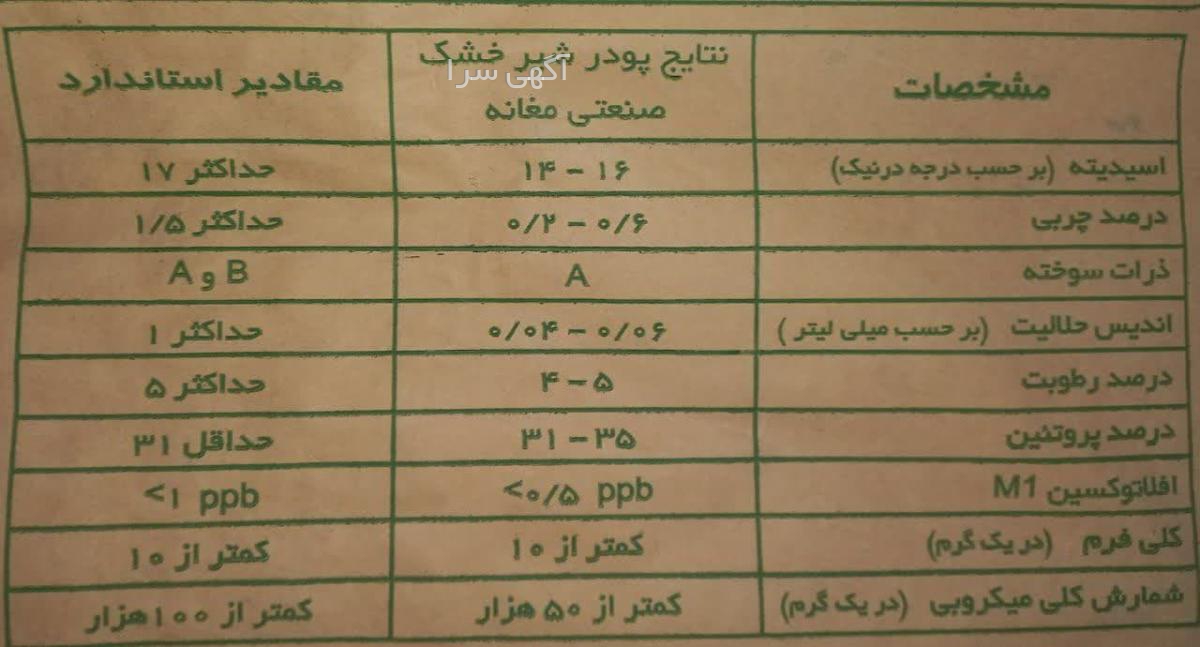 مشخصات
نتایج پودر شیر خشک
صنعتی مغانه
مقادیر استاندارد
آگهی سرا
اسیدیته (بر حسب درجه درنیک) ۱۴ – ۱۶ حداکثر ۱۷
درصد چربی ۰/۲ – ۰/۶ حداکثر ۱/۵
ذرات سوخته A A و B
اندیس حلالیت (بر حسب میلی لیتر ) ۰/۰۴ – ۰/۰۶ حداکثر ۱
درصد رطوبت ۴ – ۵ حداکثر ۵
درصد پروتئین ۳۱ – ۳۵ حداقل ۳۱
افلاتوکسین M1 <۰/۵ ppb <۱ ppb
کلی فرم (در یک گرم) کمتر از ۱۰ کمتر از ۱۰
شمارش کلی میکروبی (در یک گرم) کمتر از ۵۰ هزار کمتر از ۱۰۰هزار